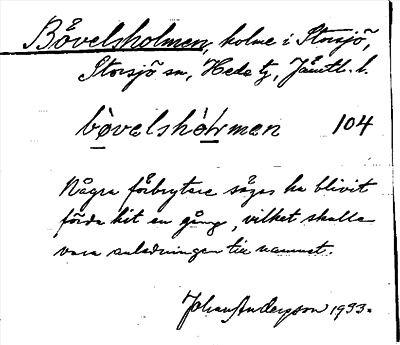 Bövelsholmen, holme i Storsjö,
Storsjö sn, Hede tg, Jämtl. l.
bòvelshòɫmen 104
Några förbrytare sägas ha blivit
förda hit en gång, vilket skulle
vara anledningen till namnet.
Johan Andersson 1933.